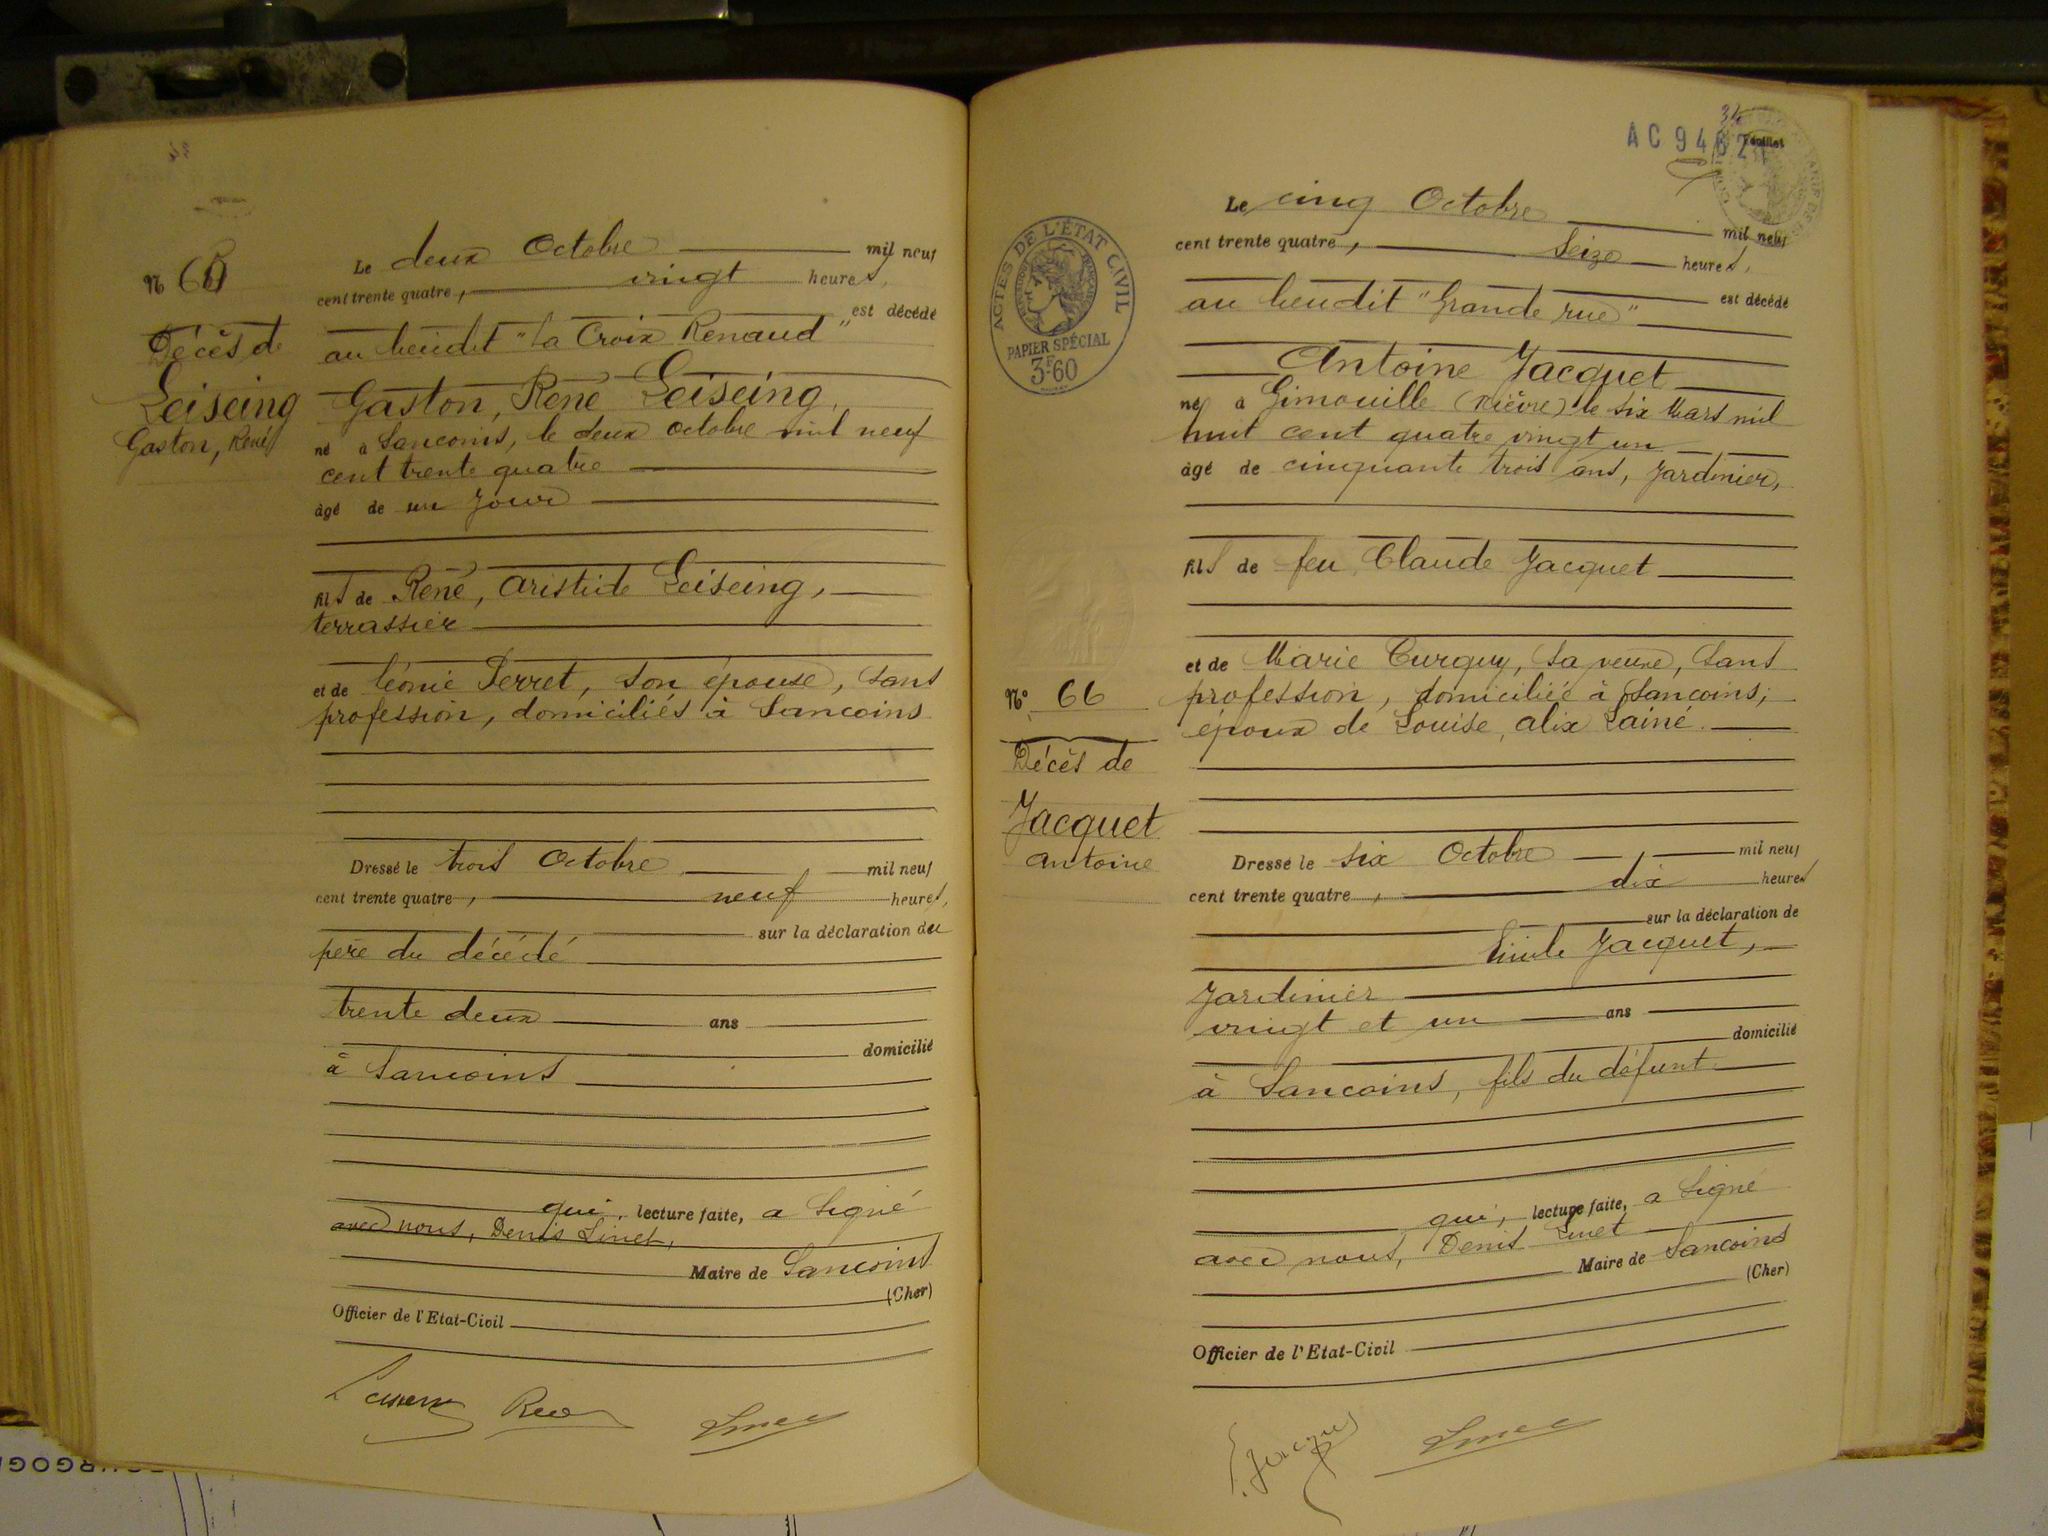 Le deux Octobre mil neuf
cent trente quatre, vingt heures,
est décédé
au lieudit "La Croix Renaud"
Gaston, René Leiseing,
né à Sancoins, le deux octobre mil neuf
cent trente quatre
âgé de un jour
fils de René, Aristide Leiseing,
terrassier
et de Léonie Perret, son épouse, sans
profession, domiciliés à Sancoins
Dressé le trois Octobre mil neuf
cent trente quatre, neuf heures,
sur la déclaration du
père du décédé
trente deux ans
domicilié
à Sancoins
qui, lecture faite, a signé
avec nous, Denis Linet,
Maire de Sancoins
(Cher)
Officier de l'Etat-Civil
N°
Décès de
Leiseing
Gaston, René
34
AC 94
Feuillet
ACTES DE L'ÉTAT CIVIL
PAPIER SPÉCIAL
3F60
Le cinq Octobre mil neuf
cent trente quatre, seize heures,
au lieudit "Grande rue" est décédé
Antoine Jacquet
né à Gimouille (Nièvre) le six Mars mil
huit cent quatre vingt un
âgé de cinquante trois ans, jardinier,
fils de feu Claude Jacquet
et de Marie Turquy, sa veuve, sans
profession, domiciliée à Sancoins;
époux de Louise, Alix Lainé.
Dressé le six Octobre mil neuf
cent trente quatre, dix heures
sur la déclaration de
Emile Jacquet,
jardinier
vingt et un ans
domicilié
à Sancoins, fils du défunt.
qui, lecture faite, a signé
avec nous, Denis Linet
Maire de Sancoins
(Cher)
Officier de l'Etat-Civil
N° 66
Décès de
Jacquet
Antoine